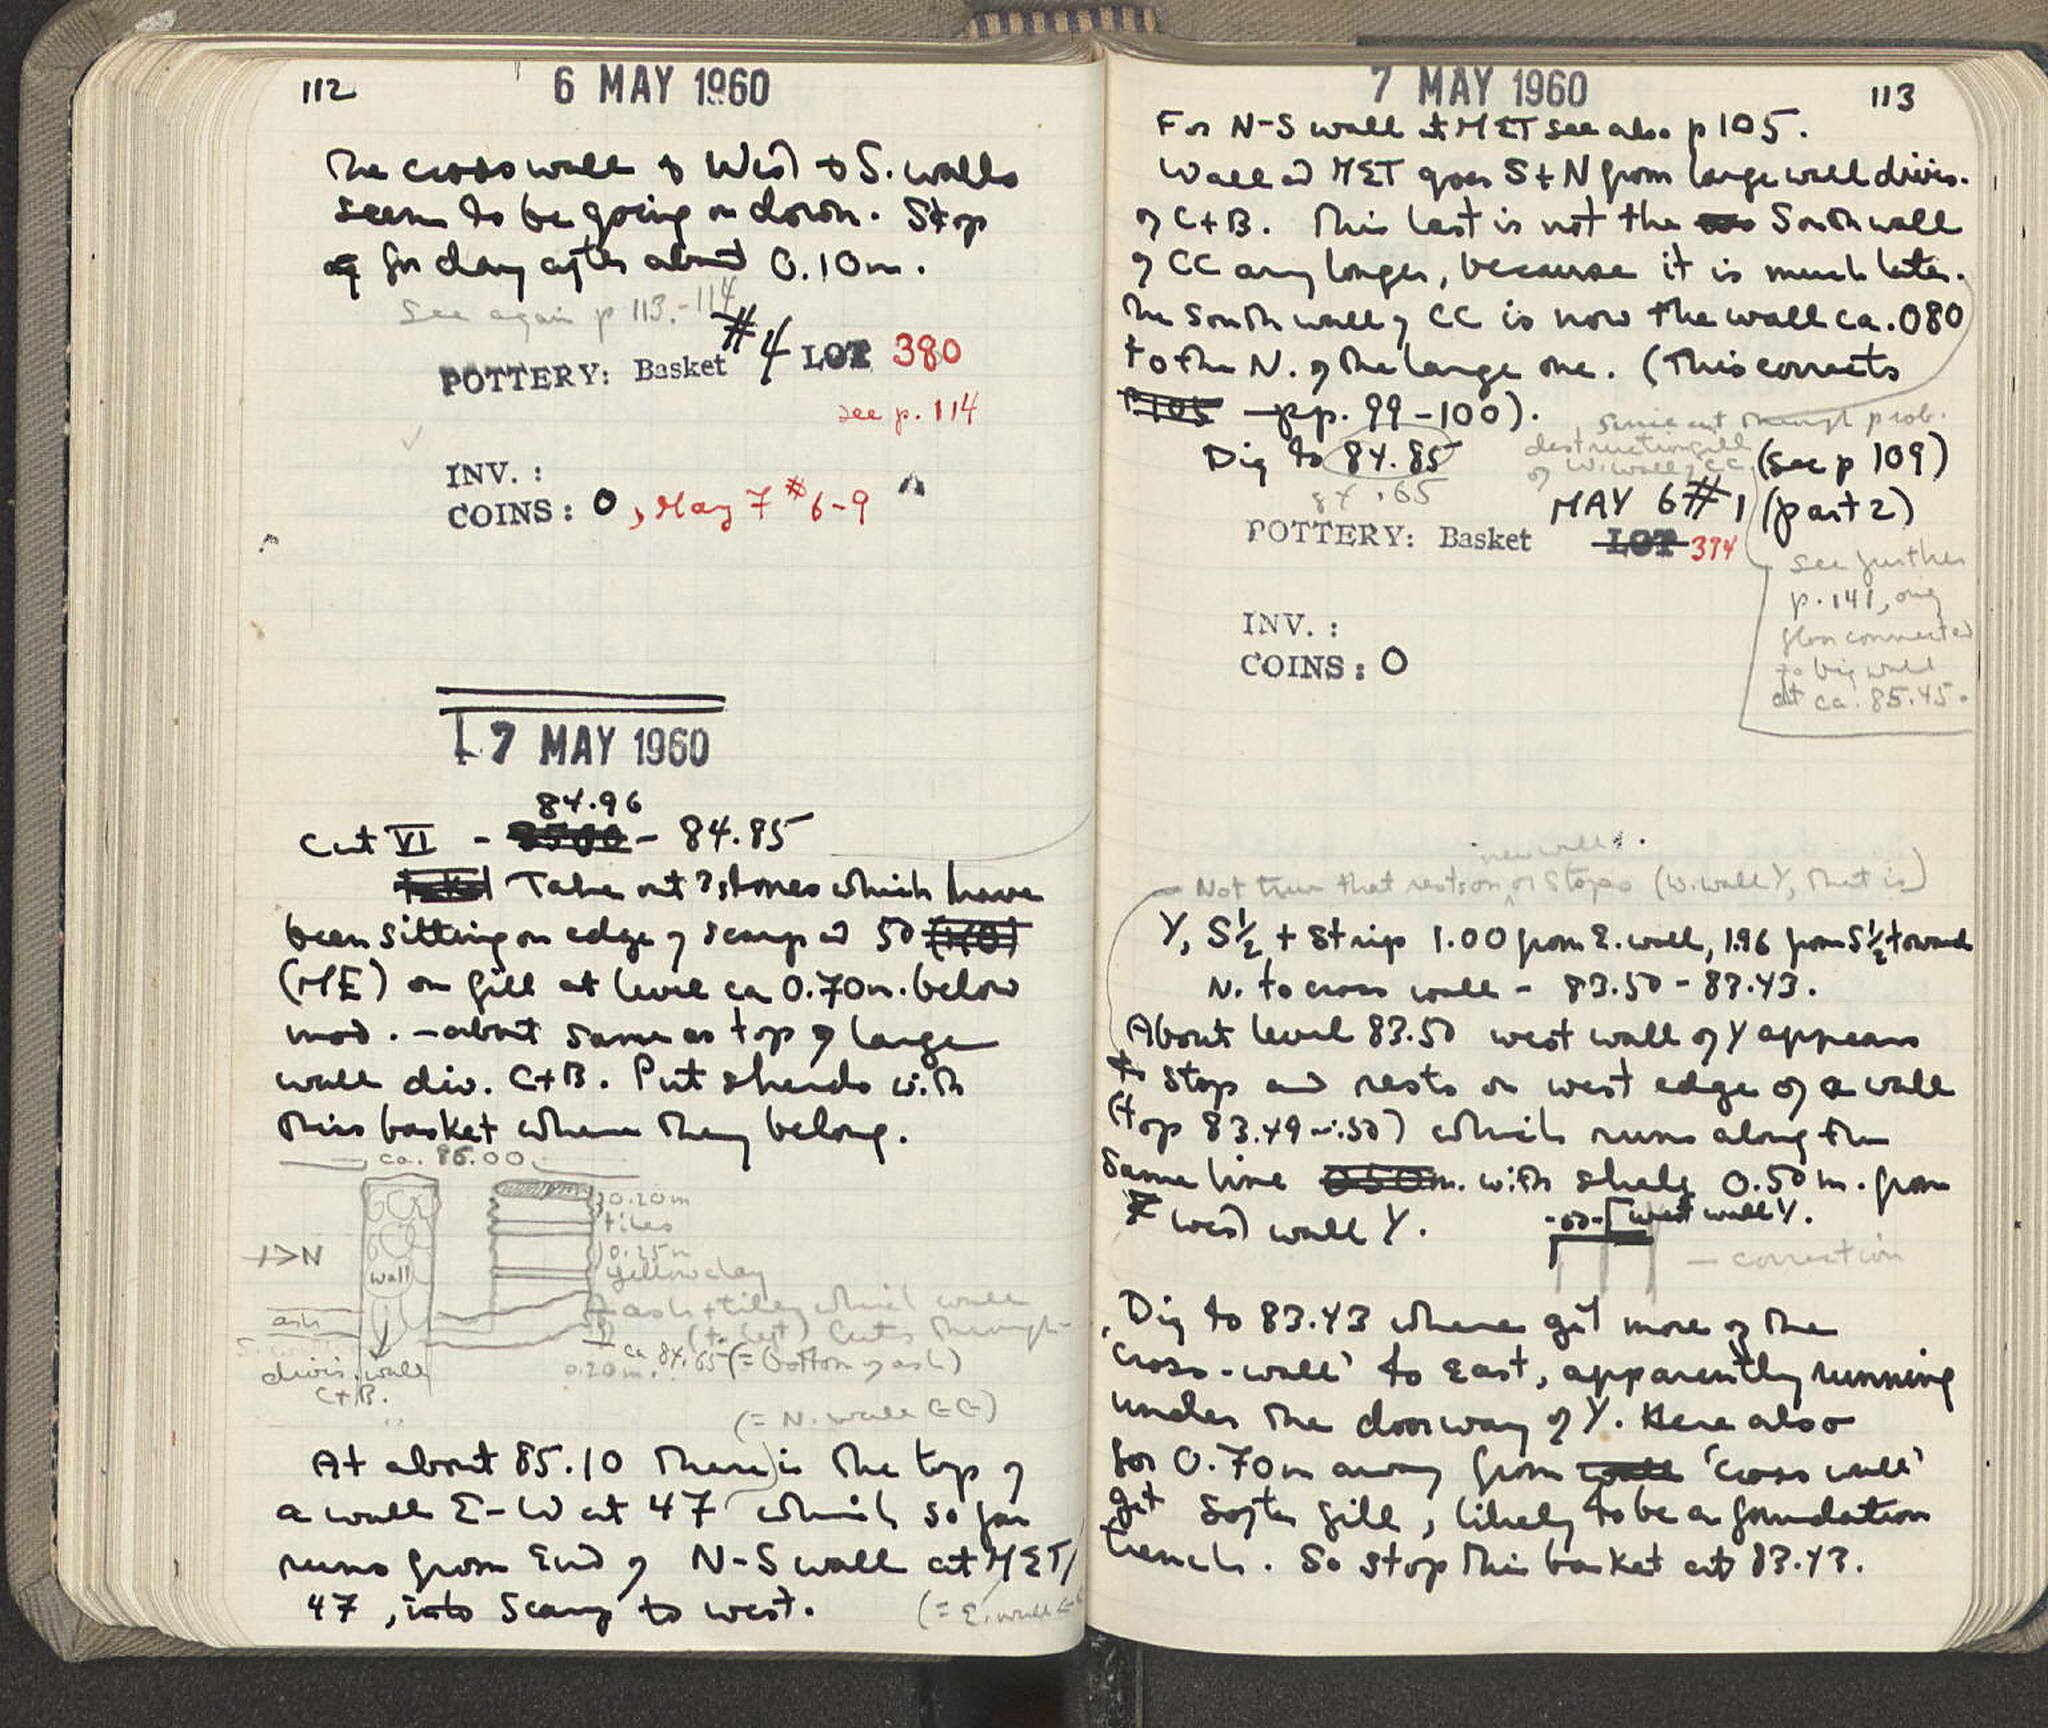 112
6 MAY 1960
The cross wall & West & S. walls
seem to be going on down. Stop
for day after about 0.10m.
See again p 113.-114
POTTERY: Basket #4 LOT 380
see p. 114
INV. :
COINS: 0, May 7 #6-9
7 MAY 1960
84.96
Cut VI - - 84.85
Take out ? stones which have
been sitting on edge of scarp at 50
(ME) on fill at level ca 0.70m. below
mod. - about same as top of large
wall div. C+B. Put sherds with
this basket where they belong.
ca. 86.00
0.20m
tiles
→N
0.25m
yellow clay
wall
ash + tiles which wall
ash
(to left) cuts through
ca 84.65 (= bottom of ash)
0.20m.
divis. wall
C+B.
(= N. wall CC)
At about 85.10 there is the top of
a wall E-W at 47 which so far
runs from End of N-S wall at MET/
47, into Scarp to west.
(= E. wall
7 MAY 1960
113
For N-S wall at MET see also p 105.
Wall at MET goes S+N from large wall divis.
of C+B. This last is not the South wall
of CC any longer, because it is much later.
The South wall of CC is now the wall ca. 080
to the N. of the large one. (This corrects
p 105 pp. 99-100).
since cut through prob.
destruction fill
of W. wall of CC
Dig to 84.85
(see p 109)
84.65
MAY 6 #1 (part 2)
POTTERY: Basket LOT 394
See further
p. 141, orig
floor connected
to big wall
at ca. 85.45.
INV. :
COINS: 0
new wall
Not true that rests on or stops (W. wall Y, that is)
Y, S½ + Strip 1.00 from E. wall, 1.96 from S½ toward
N. to cross wall - 83.50 - 83.43.
About level 83.50 west wall of Y appears
to stop and rests on west edge of a wall
(top 83.49-.50) which runs along the
same line with shelf 0.50m. from
west wall Y.
.50 west wall Y.
- correction
Dig to 83.43 where get more of the
'cross-wall' to East, apparently running
under the doorway of Y. Here also
for 0.70m away from wall 'cross wall'
get softer fill, likely to be a foundation
trench. So stop this basket at 83.43.